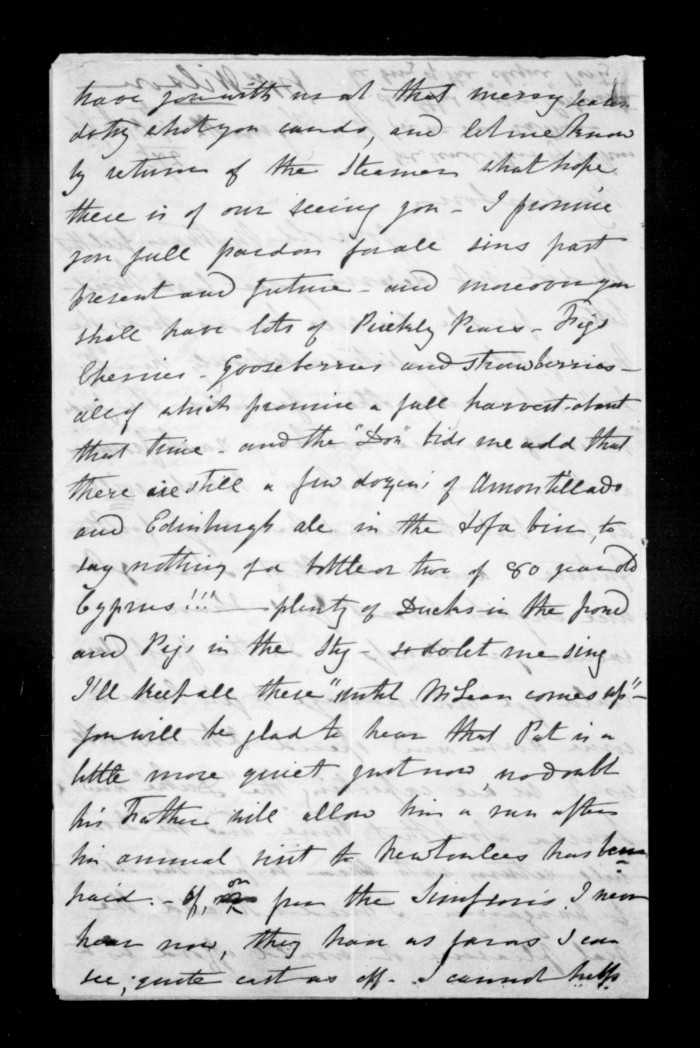 have you with us at that merry season
do try what you can do, and let me know
by return of the Steamer what hope
there is of our seeing you - I promise
you full pardon for all sins past
present and future - and moreover you
shall have lots of Prickly Pears - Figs
Cherries - Gooseberries and strawberries -
all of which promise a full harvest about
that time - and the "Don" bids me add that
there are still a few dozens of Amontillado
and Edinburgh ale in the sofa bin, to
say nothing of a bottle or two of 80 year old
Cyprus!!! — plenty of Ducks in the pond
and Pigs in the Sty - so do let me sing
I'll keep all these "until McLean comes up" -
you will be glad to hear that Pat is a
little more quiet just now, no doubt
his Father will allow him a run after
his annual visit to has been
paid. - Of, or from the Simpsons I never
hear now, they have as far as I can
see, quite cast us off - I cannot help